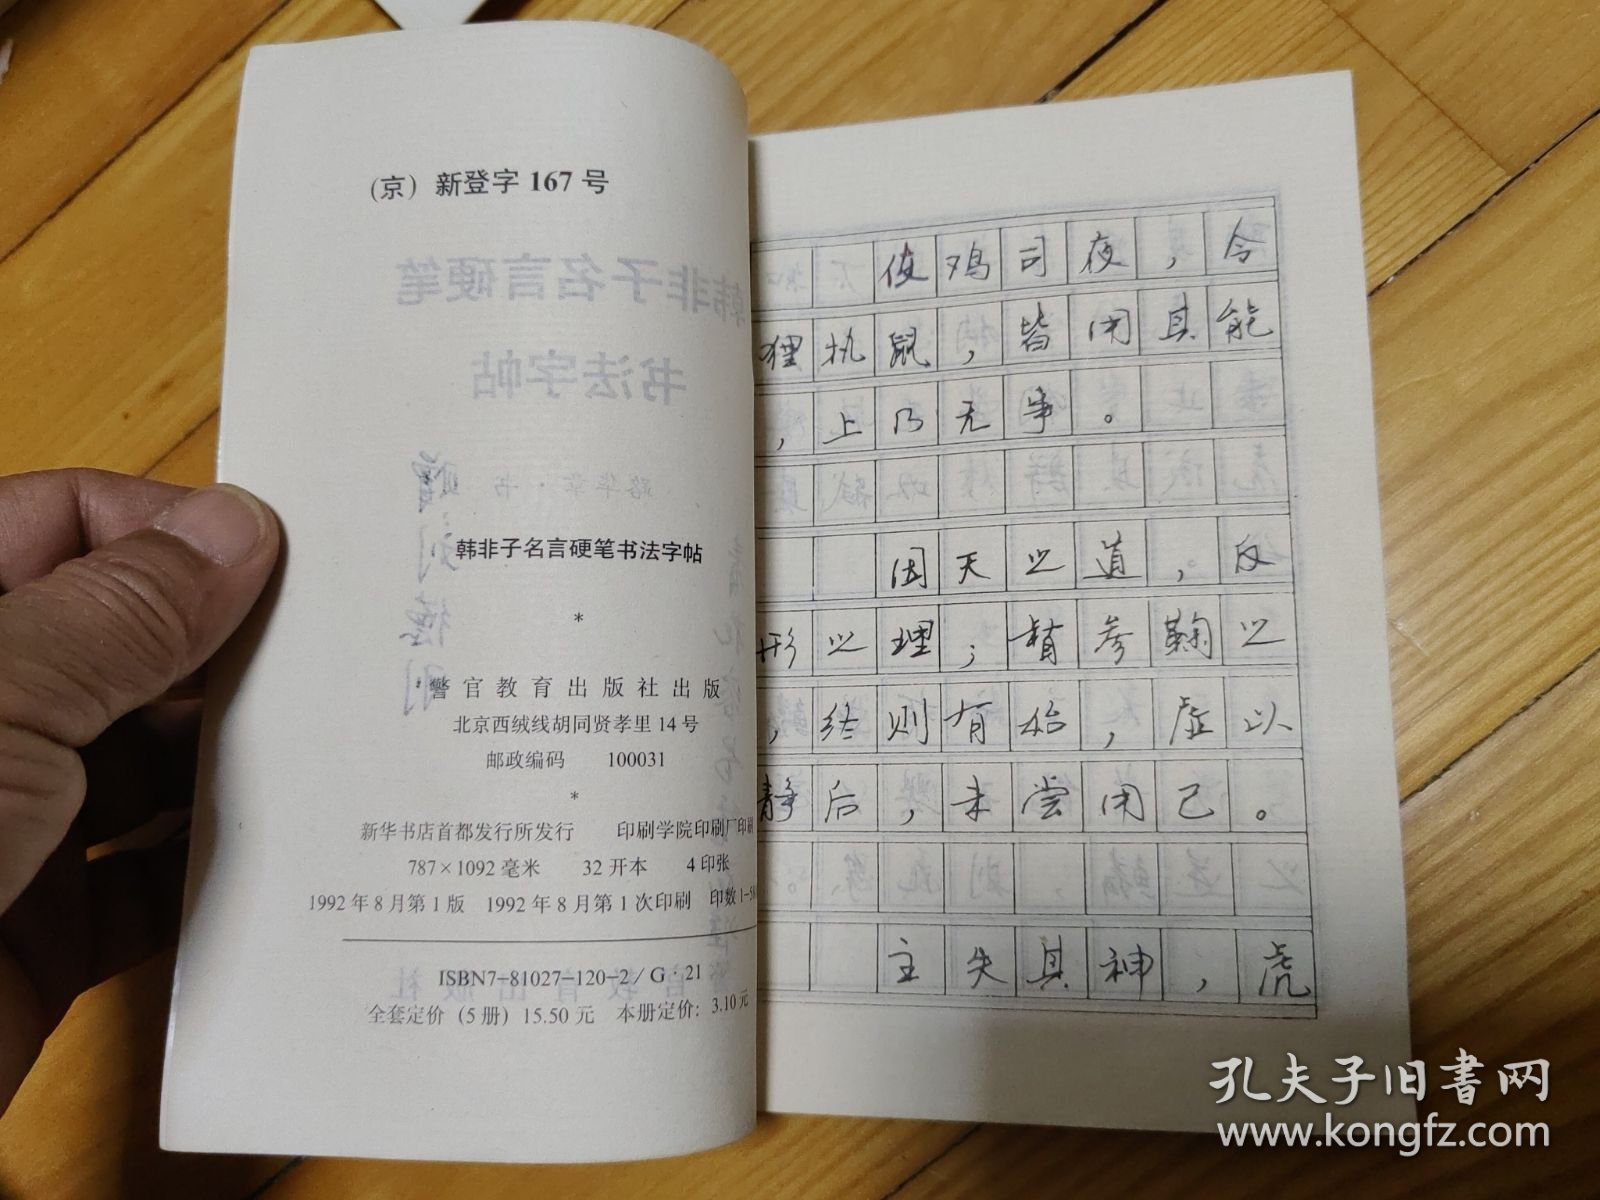 (京) 新登字 167 号
韩非子名言硬笔书法字帖
*
警官教育出版社出版
北京西绒线胡同贤孝里 14 号
邮政编码 100031
*
新华书店首都发行所发行 印刷学院印刷厂印刷
787×1092 毫米 32 开本 4 印张
1992 年 8 月第 1 版 1992 年 8 月第 1 次印刷 印数 1-5
ISBN7-81027-120-2/G·21
全套定价 (5 册) 15.50 元 本册定价: 3.10 元
使鸡司夜，令
狸执鼠，皆用其能
，上乃无事。
因天之道，反
形之理；督参鞠之
，终则有始，虚以
静后，未尝用己。
主失其神，虎
孔夫子旧书网
www.kongfz.com